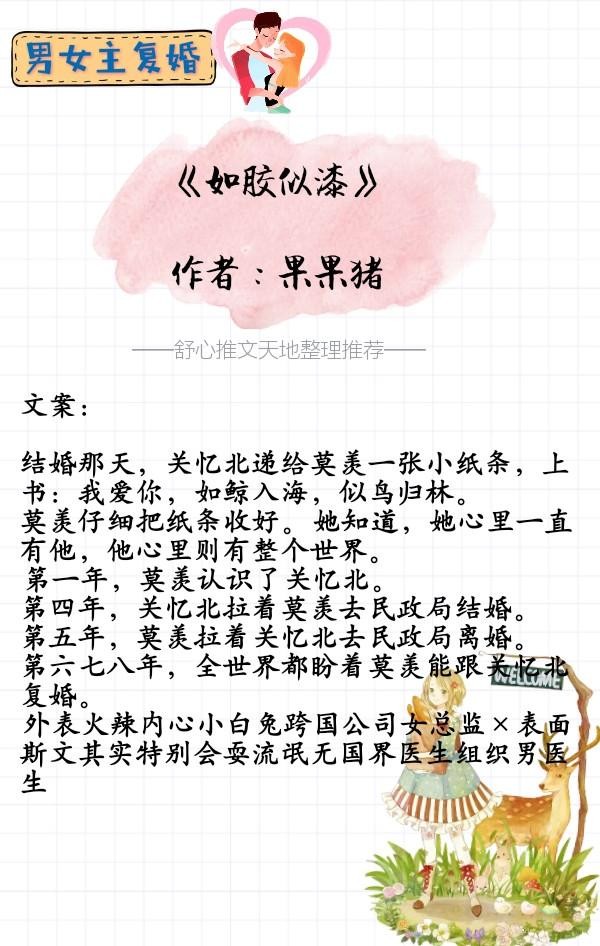 男女主复婚
《如胶似漆》
作者：果果猪
——舒心推文天地整理推荐——
文案：
结婚那天，关忆北递给莫羡一张小纸条，上
书：我爱你，如鲸入海，似鸟归林。
莫羡仔细把纸条收好。她知道，她心里一直
有他，他心里则有整个世界。
第一年，莫羡认识了关忆北。
第四年，关忆北拉着莫羡去民政局结婚。
第五年，莫羡拉着关忆北去民政局离婚。
第六七八年，全世界都盼着莫羡能跟关忆北
复婚。
外表火辣内心小白兔跨国公司女总监×表面
斯文其实特别会耍流氓无国界医生组织男医
生
WELCOME